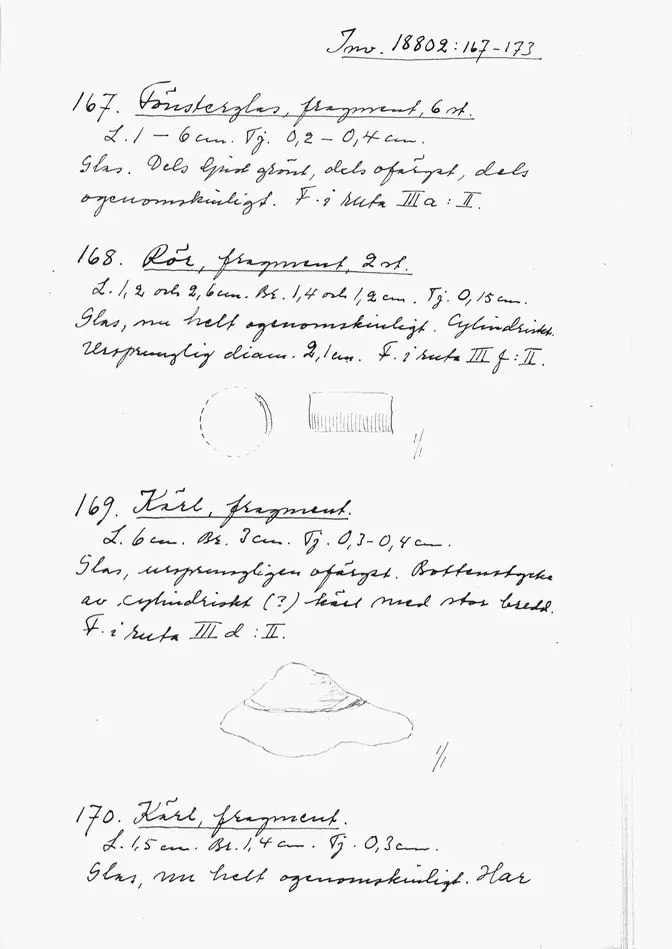 Inv. 18802:167-173
167. Fönsterglas, fragment, 6 st.
L. 1 – 6 cm. Tj. 0,2 – 0,4 cm.
Glas. Dels ljust grönt, dels ofärgat, dels
ogenomskinligt. F. i ruta III a : II.
168. Rör, fragment, 2 st.
L. 1,2 och 2,6 cm. Br. 1,4 och 1,2 cm. Tj. 0,15 cm.
Glas, nu helt ogenomskinligt. Cylindriskt.
Ursprunglig diam. 2,1 cm. F. i ruta III f : II.
1/1
169. Kärl, fragment.
L. 6 cm. Br. 3 cm. Tj. 0,3-0,4 cm.
Glas, ursprungligen ofärgat. Bottenstycke
av cylindriskt (?) kärl med stor bredd.
F. i ruta III d : II.
1/1
170. Kärl, fragment.
L. 1,5 cm. Br. 1,4 cm. Tj. 0,3 cm.
Glas, nu helt ogenomskinligt. Har